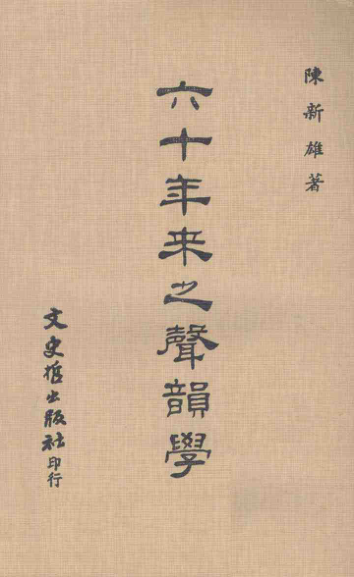 陳新雄著
六十年来之聲韻學
文史哲出版社印行